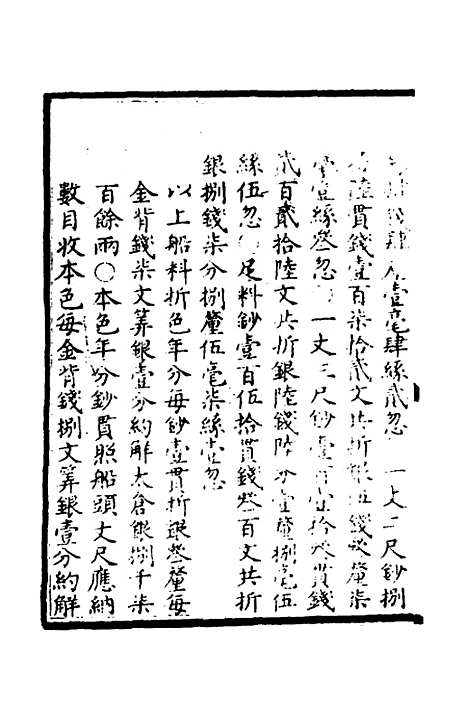 壹毫肆絲貳忽 一丈二尺鈔捌
拾陸貫錢壹百柒拾貳文共折銀伍錢 釐柒
毫壹絲叄忽 一丈三尺鈔壹百壹拾叄貫錢
貳百貳拾陸文共折銀陸錢陸分壹釐捌毫伍
絲伍忽 足料鈔壹百伍拾貫錢叄百文共折
銀捌錢柒分捌釐伍毫柒絲壹忽
以上船料折色年分每鈔壹貫折銀叄釐每
金背錢柒文筭銀壹分約解太倉銀捌千柒
百餘兩○本色年分鈔貫照船頭丈尺應納
數目收本色每金背錢捌文筭銀壹分約解